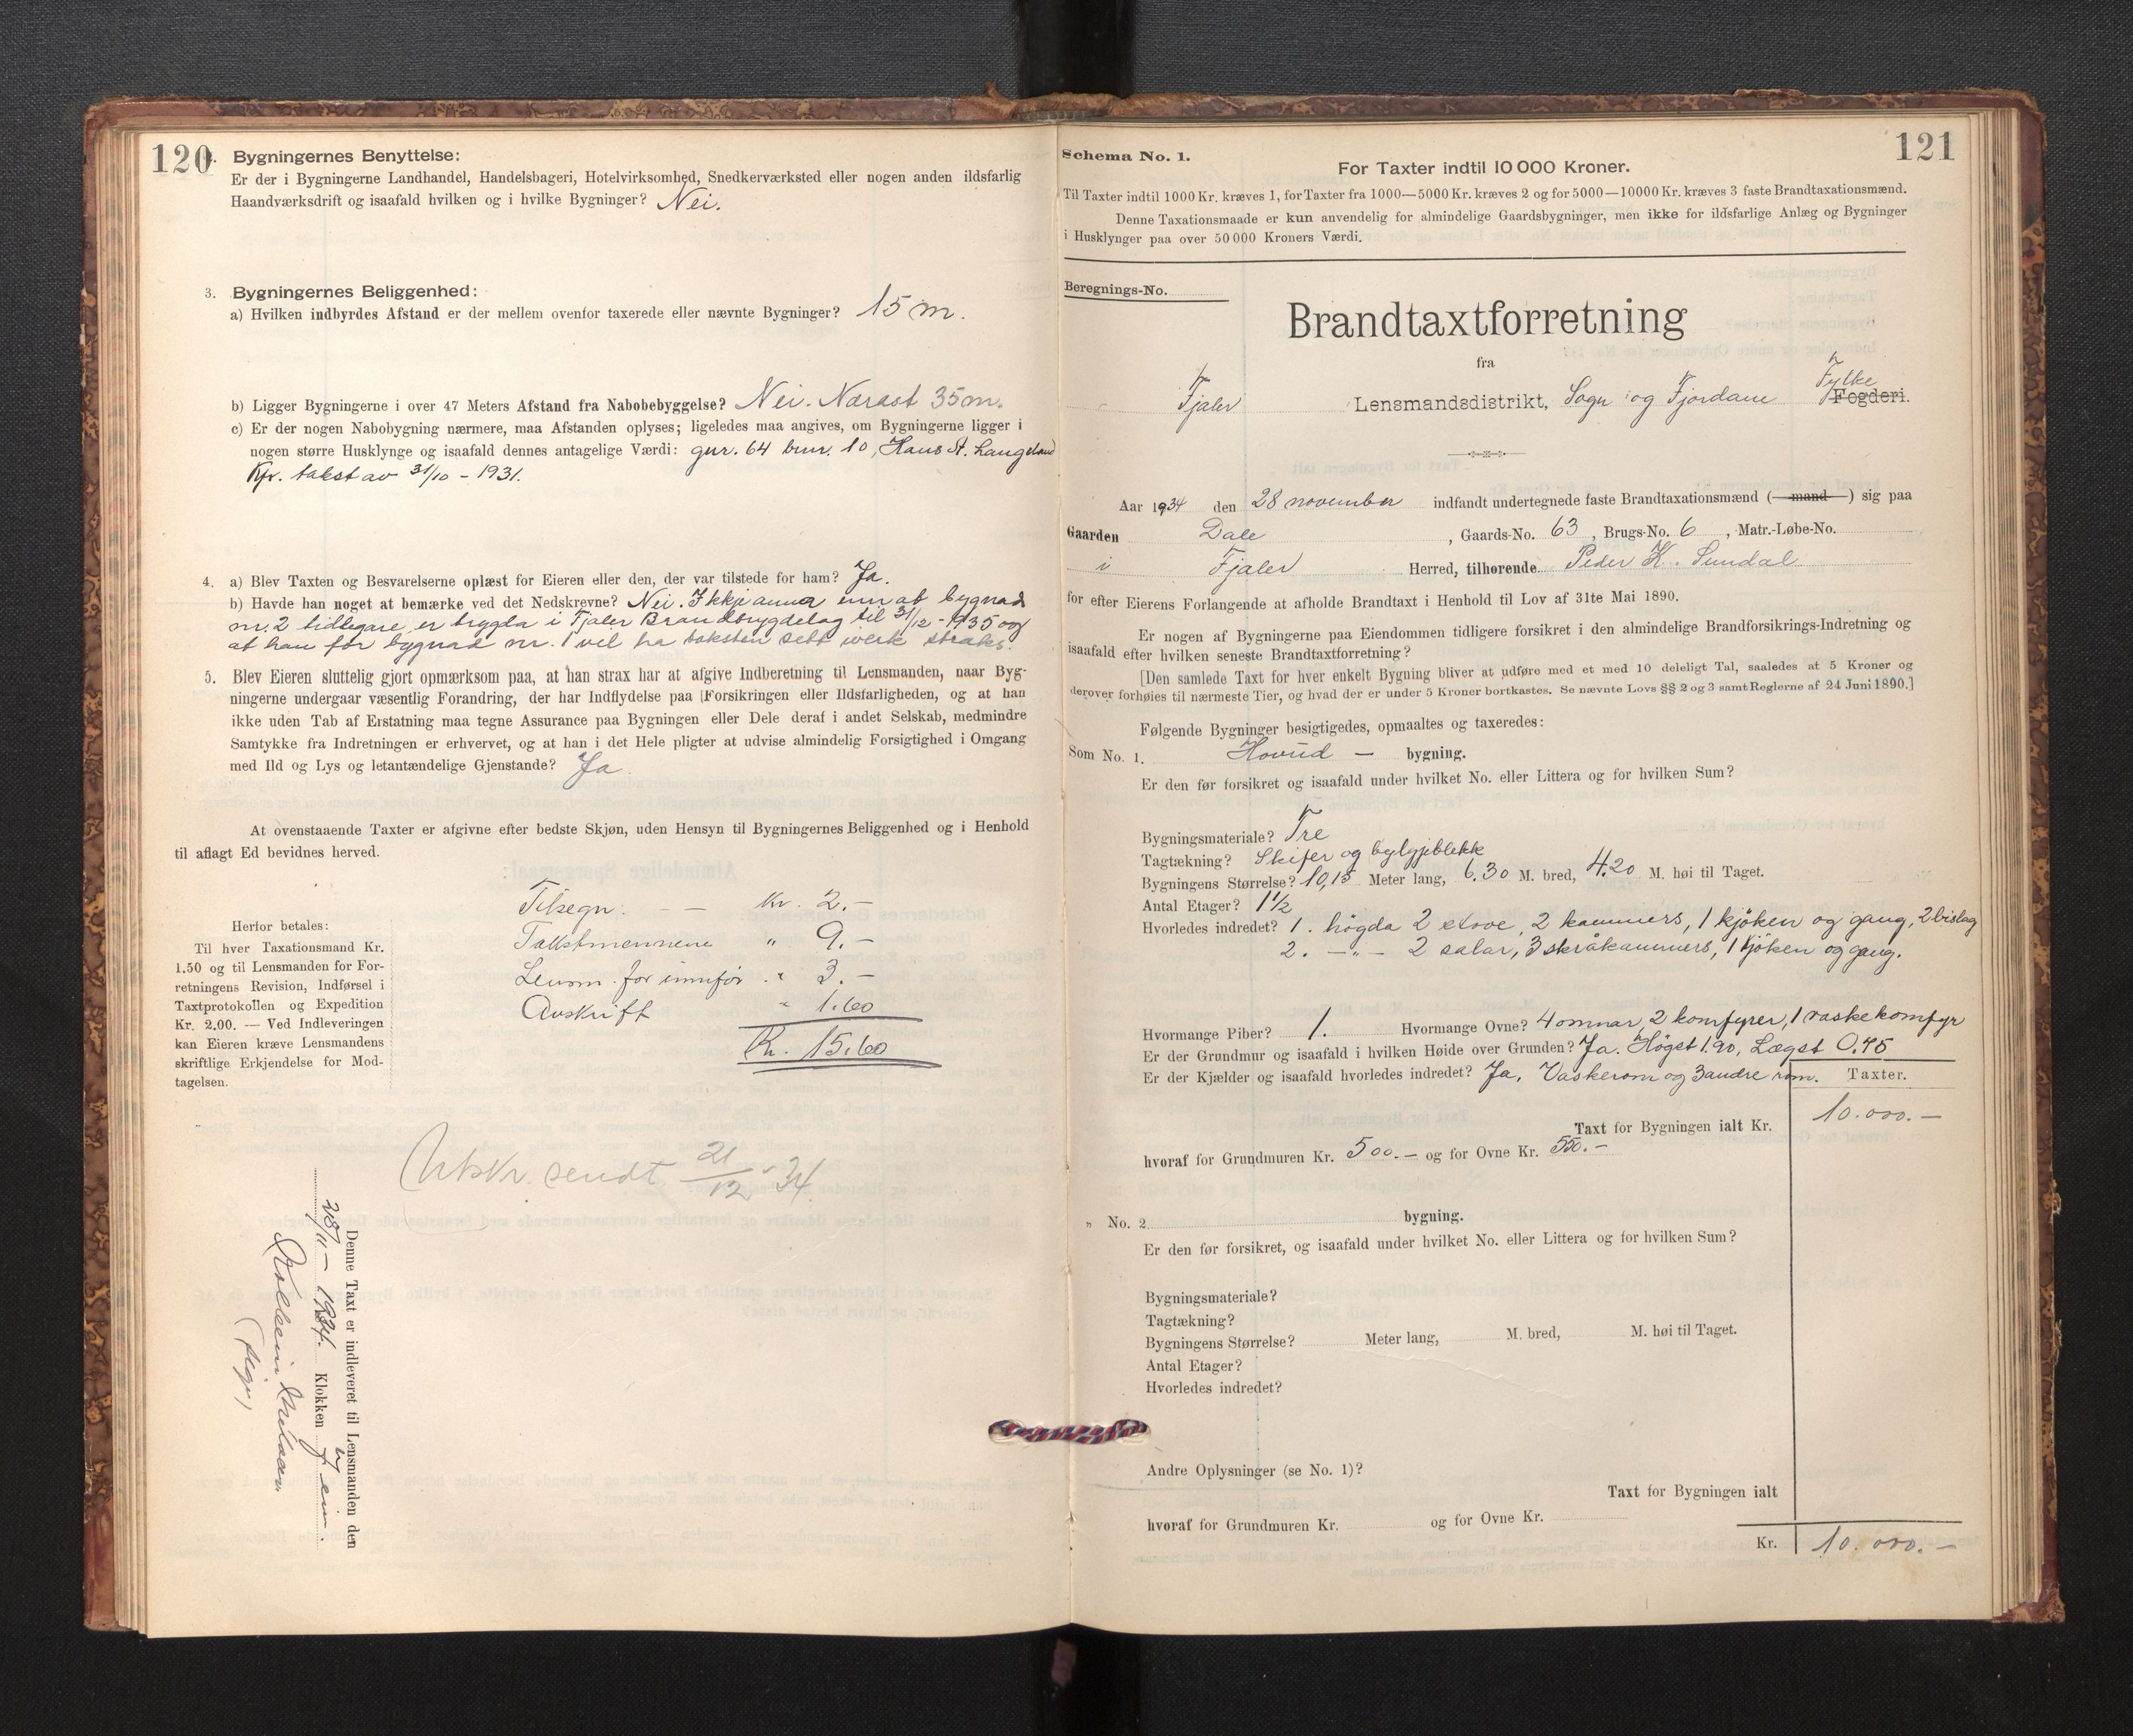 120
2. Bygningernes Benyttelse:
Er der i Bygningerne Landhandel, Handelsbageri, Hotelvirksomhed, Snedkerværksted eller nogen anden ildsfarlig
Haandværksdrift og isaafald hvilken og i hvilke Bygninger? Nei.
3. Bygningernes Beliggenhed:
a) Hvilken indbyrdes Afstand er der mellem ovenfor taxerede eller nævnte Bygninger? 15 m.
b) Ligger Bygningerne i over 47 Meters Afstand fra Nabobebyggelse? Nei. Nærast 35 m.
c) Er der nogen Nabobygning nærmere, maa Afstanden oplyses; ligeledes maa angives, om Bygningerne ligger i
nogen større Husklynge og isaafald dennes antagelige Værdi: gnr. 64 bnr. 10, Hans A. Langeland
Kfr. takst av 31/10 - 1931.
4. a) Blev Taxten og Besvarelserne oplæst for Eieren eller den, der var tilstede for ham? Ja.
b) Havde han noget at bemærke ved det Nedskrevne? Nei. Ikkje anna enn at bygnad
nr. 2 tidlegare er trygda i Fjaler Brandtrygdelag til 31/12 - 1935 og
at han for bygnad nr. 1 vil ha taksten sett iverk straks.
5. Blev Eieren sluttelig gjort opmærksom paa, at han strax har at afgive Indberetning til Lensmanden, naar Byg-
ningerne undergaar væsentlig Forandring, der har Indflydelse paa Forsikringen eller Ildsfarligheden, og at han
ikke uden Tab af Erstatning maa tegne Assurance paa Bygningen eller Dele deraf i andet Selskab, medmindre
Samtykke fra Indretningen er erhvervet, og at han i det Hele pligter at udvise almindelig Forsigtighed i Omgang
med Ild og Lys og letantændelige Gjenstande? Ja
At ovenstaaende Taxter er afgivne efter bedste Skjøn, uden Hensyn til Bygningernes Beliggenhed og i Henhold
til aflagt Ed bevidnes herved.
Herfor betales:
Til hver Taxationsmand Kr.
1.50 og til Lensmanden for For-
retningens Revision, Indførsel i
Taxtprotokollen og Expedition
Kr. 2.00. — Ved Indleveringen
kan Eieren kræve Lensmandens
skriftlige Erkjendelse for Mod-
tagelsen.
Tilsegn. — Kr. 2.-
Takstmennene " 9.-
Lensm. for innfør. " 3.-
Avskrift " 1.60
Kr. 15.60
Utskr. sendt 21/12 - 34.
Denne Taxt er indleveret til Lensmanden den
28/11 - 1934. Klokken
121
Schema No. 1.
For Taxter indtil 10 000 Kroner.
Til Taxter indtil 1000 Kr. kræves 1, for Taxter fra 1000—5000 Kr. kræves 2 og for 5000—10000 Kr. kræves 3 faste Brandtaxationsmænd.
Denne Taxationsmaade er kun anvendelig for almindelige Gaardsbygninger, men ikke for ildsfarlige Anlæg og Bygninger
i Husklynger paa over 50 000 Kroners Værdi.
Beregnings-No.
Brandtaxtforretning
fra
Fjaler Lensmandsdistrikt, Sogn og Fjordane Fylke Fogderi.
Aar 1934 den 28 november indfandt undertegnede faste Brandtaxationsmænd (mand) sig paa
Gaarden Dale, Gaards-No. 63, Brugs-No. 6, Matr.-Løbe-No.
i Fjaler Herred, tilhørende Peder K. Sundal
for efter Eierens Forlangende at afholde Brandtaxt i Henhold til Lov af 31te Mai 1890.
Er nogen af Bygningerne paa Eiendommen tidligere forsikret i den almindelige Brandforsikrings-Indretning og
isaafald efter hvilken seneste Brandtaxtforretning?
[Den samlede Taxt for hver enkelt Bygning bliver at udføre med et med 10 deleligt Tal, saaledes at 5 Kroner og
derover forhøies til nærmeste Tier, og hvad der er under 5 Kroner bortkastes. Se nævnte Lovs §§ 2 og 3 samt Reglerne af 24 Juni 1890.]
Følgende Bygninger besigtigedes, opmaaltes og taxeredes:
Som No. 1. Hovud — bygning.
Er den før forsikret og isaafald under hvilket No. eller Littera og for hvilken Sum?
Bygningsmateriale? Tre
Tagtækning? Skifer og bylgjeblekk
Bygningens Størrelse? 10,15 Meter lang, 6.30 M. bred, 4.20 M. høi til Taget.
Antal Etager? 1 1/2
Hvorledes indredet? 1. högda 2 stove, 2 kammers, 1 kjöken og gang, 2 bislag
2. — " — 2 salar, 3 skråkammers, 1 kjöken og gang.
Hvormange Piber? 1. Hvormange Ovne? 4 omnar, 2 komfyrer, 1 vaskekomfyr
Er der Grundmur og isaafald i hvilken Høide over Grunden? Ja. Högst 1.90, Lægst 0.45
Er der Kjælder og isaafald hvorledes indredet? Ja, Vaskerom og 3 andre rom.
Taxter.
Taxt for Bygningen ialt Kr. 10.000.-
hvoraf for Grundmuren Kr. 500.- og for Ovne Kr. 550.-
" No. 2 bygning.
Er den før forsikret, og isaafald under hvilket No. eller Littera og for hvilken Sum?
Bygningsmateriale?
Tagtækning?
Bygningens Størrelse? Meter lang, M. bred, M. høi til Taget.
Antal Etager?
Hvorledes indredet?
Andre Oplysninger (se No. 1)?
Taxt for Bygningen ialt
hvoraf for Grundmuren Kr. og for Ovne Kr.
Kr. 10.000.-